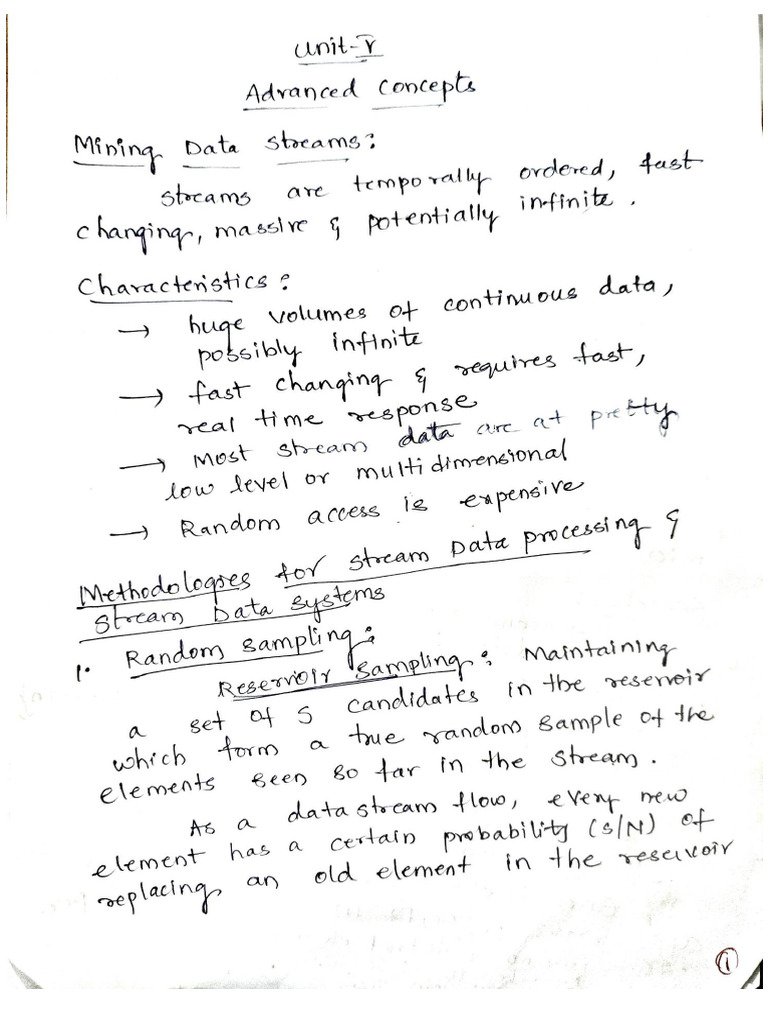 Unit-V
Advanced Concepts
Mining Data Streams:
Streams are temporally ordered, fast
changing, massive & potentially infinite.
Characteristics:
→ huge volumes of continuous data,
possibly infinite
→ fast changing & requires fast,
real time response
→ Most stream data are at pretty
low level or multidimensional
→ Random access is expensive
Methodologies for stream Data processing &
Stream Data systems
1. Random sampling:
Reservoir sampling: Maintaining
a set of S candidates in the reservoir
which form a true random sample of the
elements seen so far in the stream.
As a data stream flow, every new
element has a certain probability (S/N) of
replacing an old element in the reservoir
1